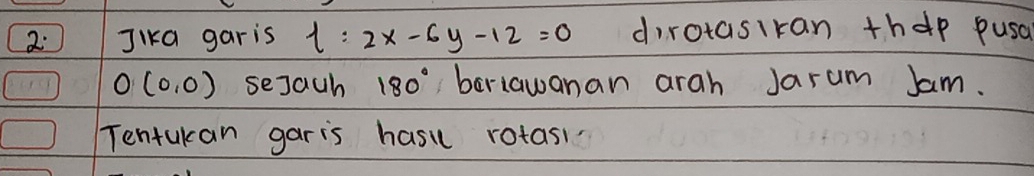 2. Jika garis l : 2x - 6y - 12 = 0 dirotasikan thdp pusa
O (0,0) sejauh 180° berlawanan arah Jarum Jam.
Tentukan garis hasil rotasi